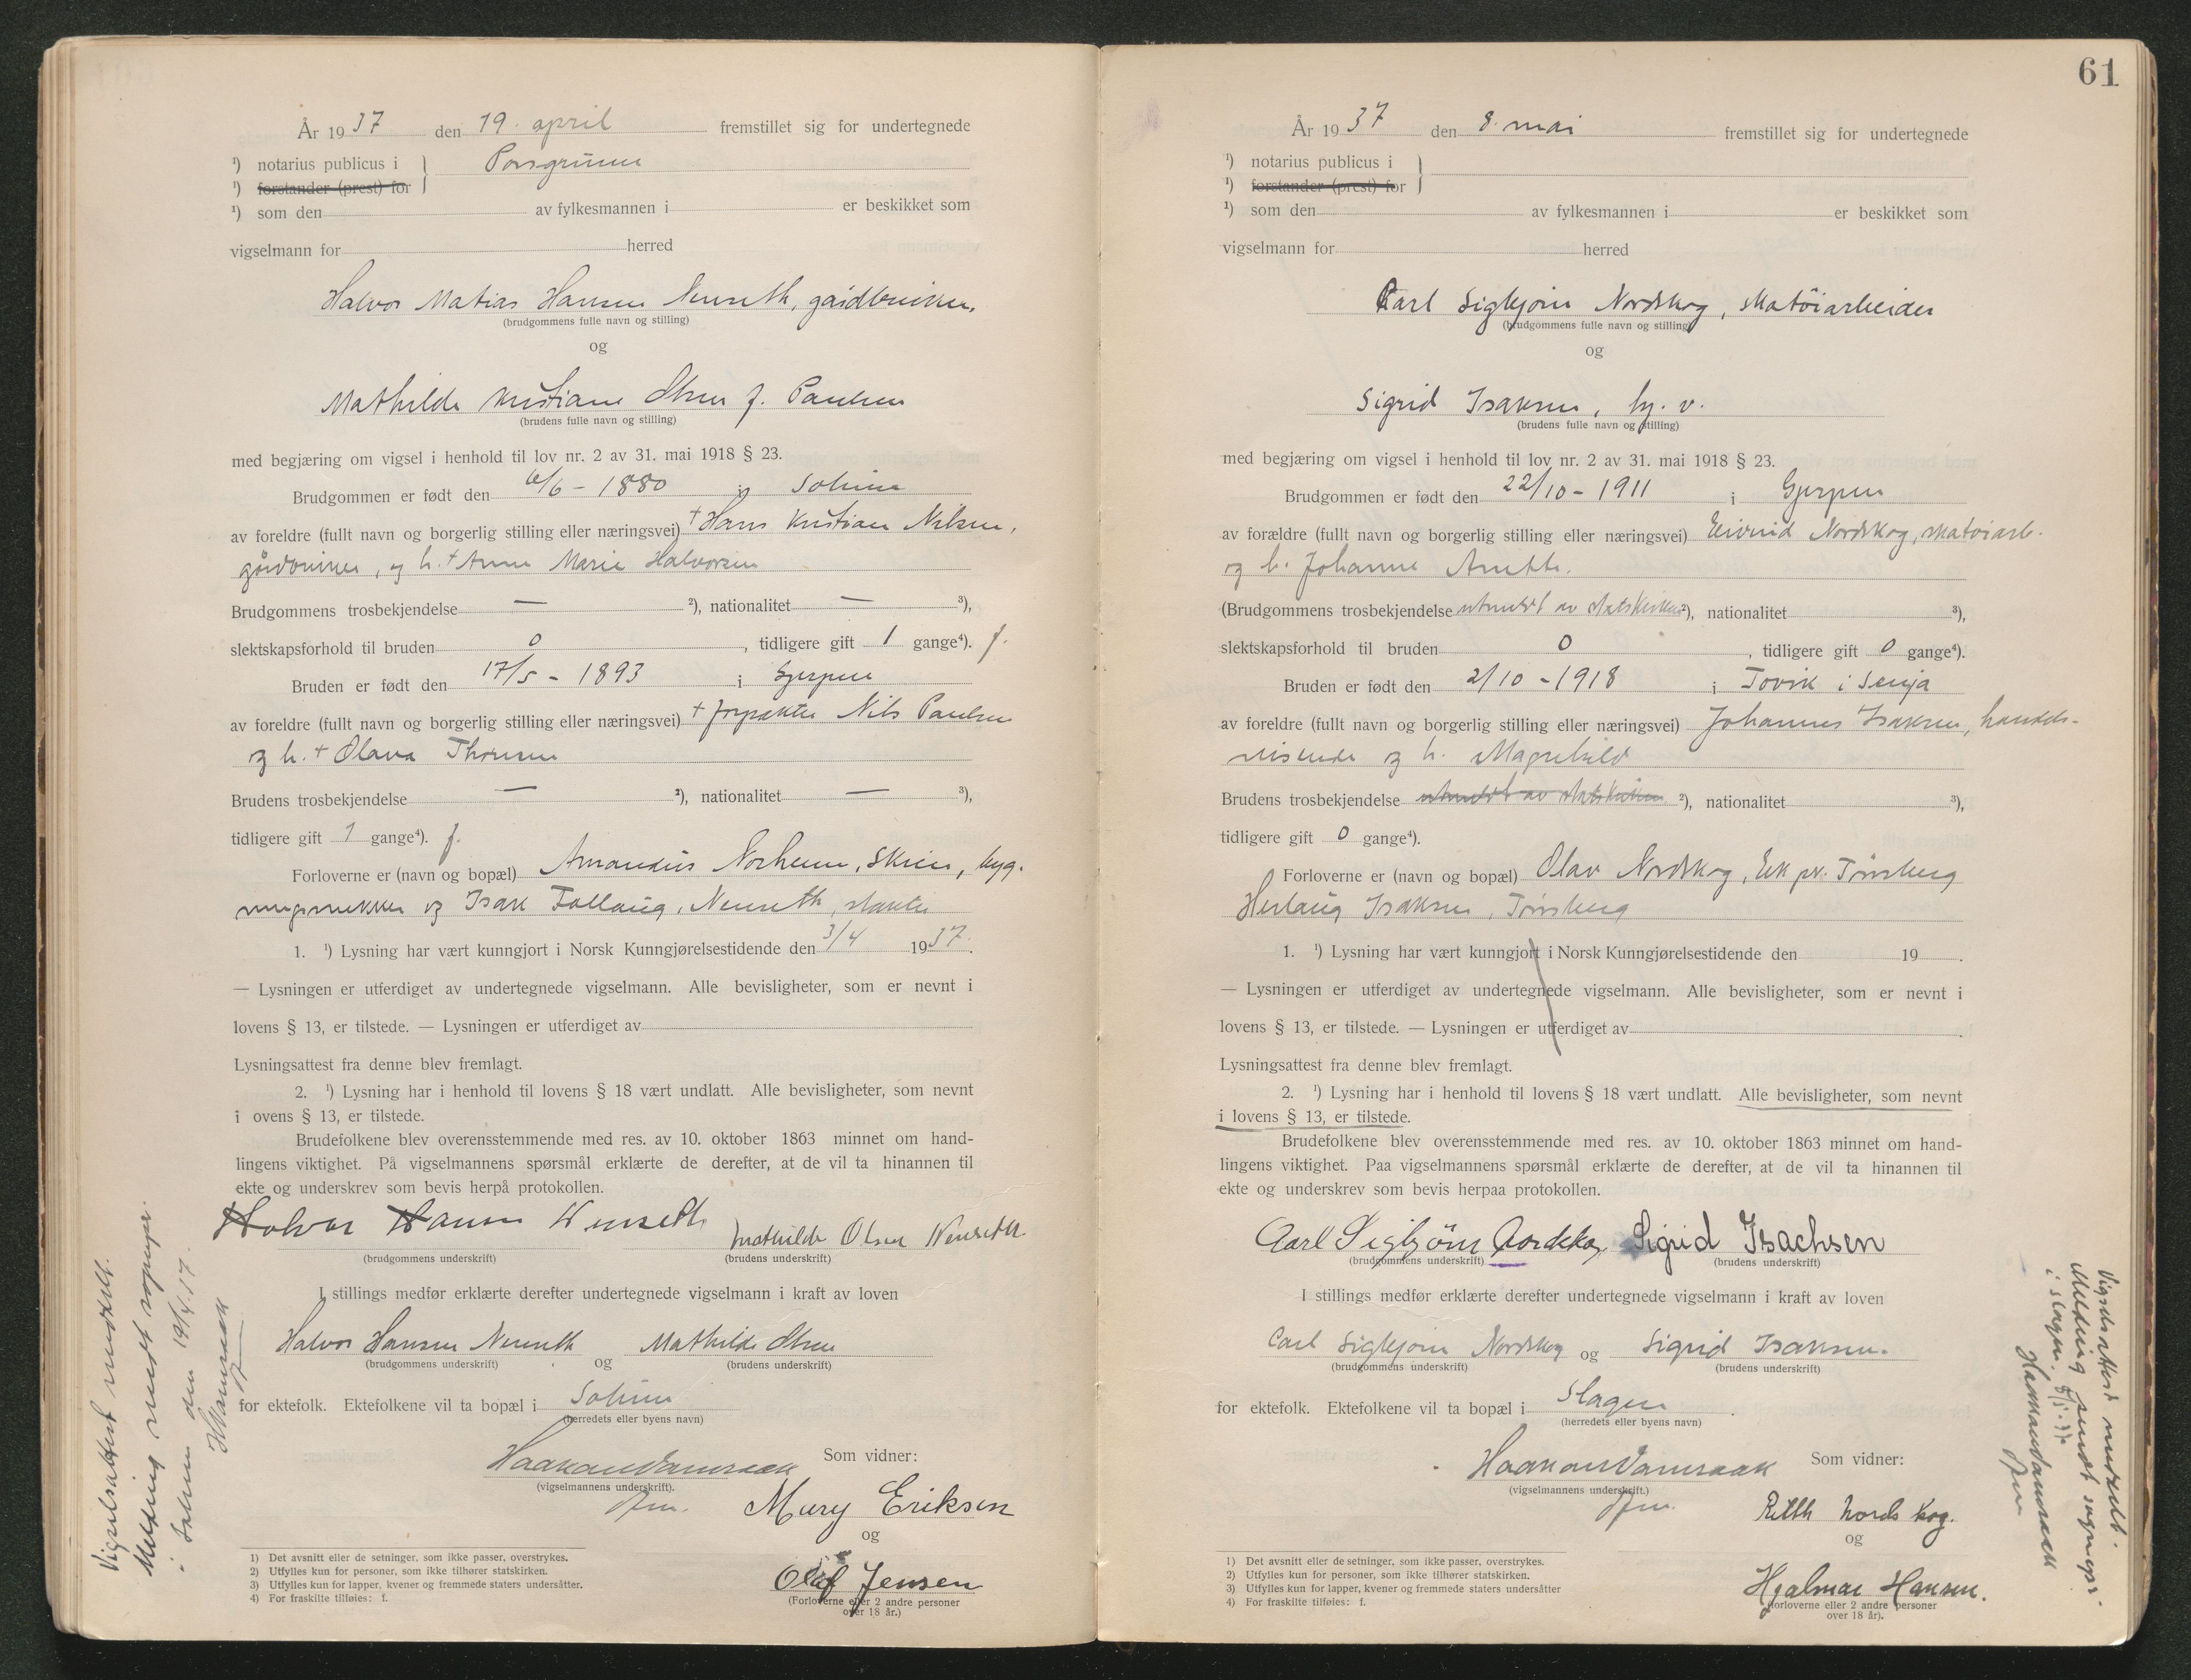 År 1937 den 19. april fremstillet sig for undertegnede
¹) notarius publicus i Porsgrunn
¹) forstander (prest) for
¹) som den av fylkesmannen i er beskikket som
vigselmann for herred
Halvor Matias Hansen Nenseth, gårdbruker,
(brudgommens fulle navn og stilling)
og
Mathilde Kristiane Olsen f. Paulsen
(brudens fulle navn og stilling)
med begjæring om vigsel i henhold til lov nr. 2 av 31. mai 1918 § 23.
Brudgommen er født den 6/6 - 1880 i Solum
av foreldre (fullt navn og borgerlig stilling eller næringsvei) + Hans Kristian Nilsen,
og h. + Anne Marie Halvorsen
Brudgommens trosbekjendelse — ²), nationalitet — ³),
slektskapsforhold til bruden 0, tidligere gift 1 gange⁴). f.
Bruden er født den 17/5 - 1893 i Gjerpen
av foreldre (fullt navn og borgerlig stilling eller næringsvei) + forpakter Nils Paulsen
og h. + Olava Thorsen
Brudens trosbekjendelse — ²), nationalitet — ³),
tidligere gift 1 gange⁴). f.
Forloverne er (navn og bopæl) Amandus Norheim, Skien, byg-
ningssnekker og Isak Follaug, Nenseth,
1. ¹) Lysning har vært kunngjort i Norsk Kunngjørelsestidende den 3/4 1937.
— Lysningen er utferdiget av undertegnede vigselmann. Alle bevisligheter, som er nevnt i
lovens § 13, er tilstede. — Lysningen er utferdiget av
Lysningsattest fra denne blev fremlagt.
2. ¹) Lysning har i henhold til lovens § 18 vært undlatt. Alle bevisligheter, som nevnt
i ovens § 13, er tilstede.
Brudefolkene blev overensstemmende med res. av 10. oktober 1863 minnet om hand-
lingens viktighet. På vigselmannens spørsmål erklærte de derefter, at de vil ta hinannen til
ekte og underskrev som bevis herpå protokollen.
Halvor Hansen Nenseth Mathilde Olsen Nenseth
(brudgommens underskrift) (brudens underskrift)
I stillings medfør erklærte derefter undertegnede vigselmann i kraft av loven
Halvor Hansen Nenseth og Mathilde Olsen
(brudgommens underskrift) (brudens underskrift)
for ektefolk. Ektefolkene vil ta bopæl i Solum
(herredets eller byens navn)
Som vidner:
(vigselmannens underskrift).
Mary Eriksen
og
Olaf Jensen
(Forloverne eller 2 andre personer
over 18 år.)
1) Det avsnitt eller de setninger, som ikke passer, overstrykes.
2) Utfylles kun for personer, som ikke tilhører statskirken.
3) Utfylles kun for lapper, kvener og fremmede staters undersåtter.
4) For fraskilte tilføies: f.
Vigselsattest meddelt.
Melding sendt sognepr.
i Solum den 19/4 37.
61
År 1937 den 8. mai fremstillet sig for undertegnede
¹) notarius publicus i
¹) forstander (prest) for
¹) som den av fylkesmannen i er beskikket som
vigselmann for herred
Carl Sigbjørn Nordskog, skotøiarbeider
(brudgommens fulle navn og stilling)
og
Sigrid Isaksen, hj. v.
(brudens fulle navn og stilling)
med begjæring om vigsel i henhold til lov nr. 2 av 31. mai 1918 § 23.
Brudgommen er født den 22/10 - 1911 i Gjerpen
av forældre (fullt navn og borgerlig stilling eller næringsvei) Eivind Nordskog, skotøiarb.
og h. Johanne Anette.
(Brudgommens trosbekjendelse utmeldt av statskirken ²), nationalitet ³),
slektskapsforhold til bruden 0, tidligere gift 0 gange⁴).
Bruden er født den 2/10 - 1918 i Tovik i Senja
av foreldre (fullt navn og borgerlig stilling eller næringsvei) Johannes Isaksen, handels-
reisende og h. Magnhild
Brudens trosbekjendelse utmeldt av statskirken ²), nationalitet ³),
tidligere gift 0 gange⁴).
Forloverne er (navn og bopæl) Olav Nordskog, Eik pr. Tønsberg
Herlaug Isaksen, Tønsberg
1. ¹) Lysning har vært kunngjort i Norsk Kunngjørelsestidende den 19 .
— Lysningen er utferdiget av undertegnede vigselmann. Alle bevisligheter, som er nevnt i
lovens § 13, er tilstede. — Lysningen er utferdiget av
Lysningsattest fra denne blev fremlagt.
2. ¹) Lysning har i henhold til lovens § 18 vært undlatt. Alle bevisligheter, som nevnt
i lovens § 13, er tilstede.
Brudefolkene blev overensstemmende med res. av 10. oktober 1863 minnet om hand-
lingens viktighet. Paa vigselmannens spørsmål erklærte de derefter, at de vil ta hinannen til
ekte og underskrev som bevis herpaa protokollen.
Carl Sigbjörn Nordskog Sigrid Isachsen
(brudgommens underskrift) (brudens underskrift)
I stillings medfør erklærte derefter undertegnede vigselmann i kraft av loven
Carl Sigbjørn Nordskog og Sigrid Isaksen.
(brudgommens underskrift) (brudens underskrift)
for ektefolk. Ektefolkene vil ta bopæl i Slagen
(herredets eller byens navn)
Som vidner:
(vigselmannens underskrift.)
Nordskog.
og
Hjalmar Hansen.
(forloverne eller 2 andre personer
over 18 år).
1) Det avsnitt eller de setninger, som ikke passer, overstrykes.
2) Utfylles kun for personer, som ikke tilhører statskirken.
3) Utfylles kun for lapper, kvener og fremmede staters undersåtter
4) For fraskilte tilføies: f.
Vigselsattest meddelt.
Melding sendt sognepr.
i Slagen. 8/5.37